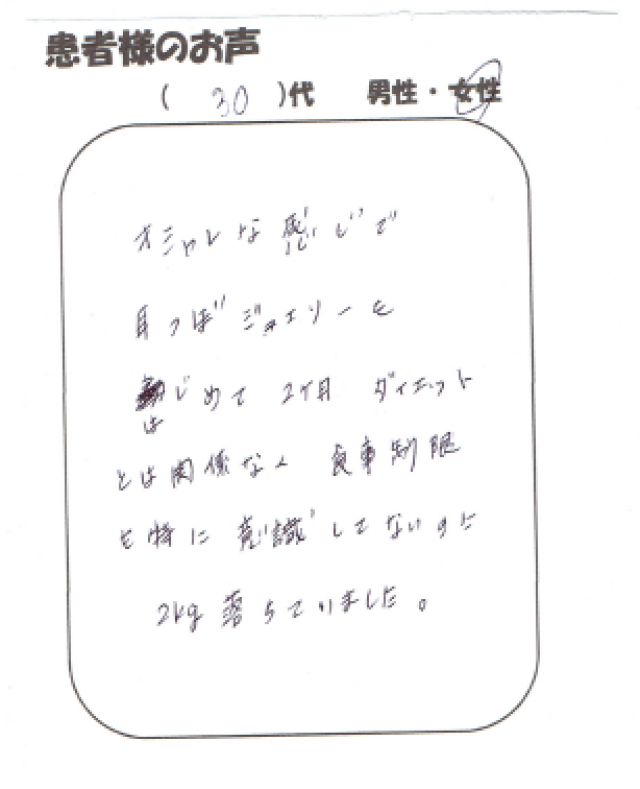 患者様のお声
( 30 )代 男性・女性
オシャレな感じで
耳つぼジュエリーを
はじめて 2ケ月 ダイエット
とは関係なく 食事制限
を特に意識してないのに
2kg 落ちていました。